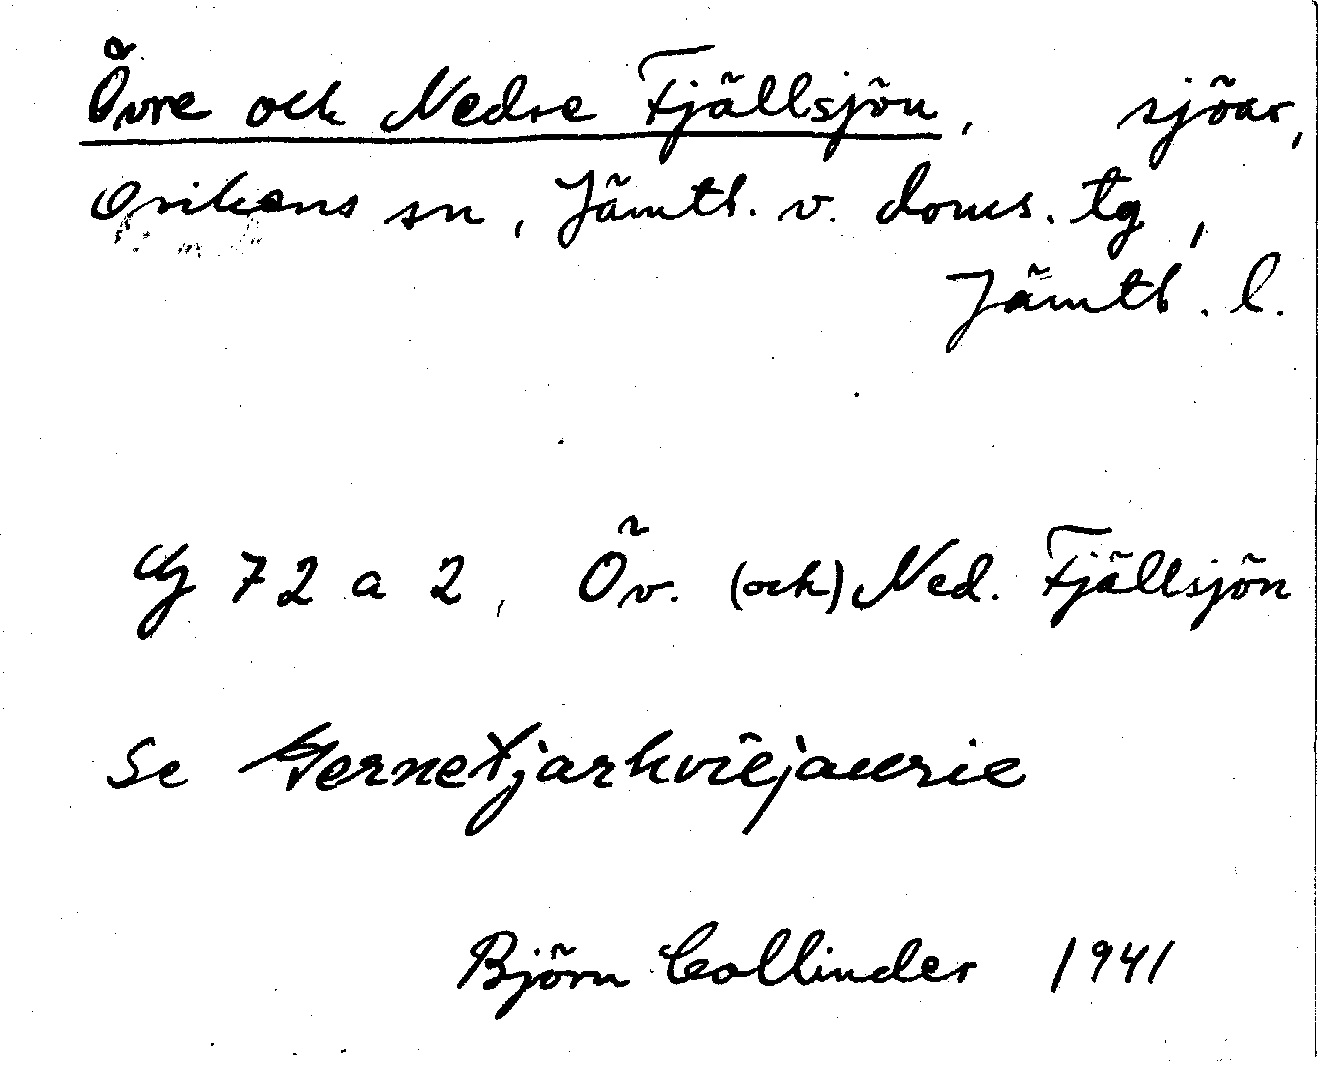 Övre och Nedre Fjällsjön, sjöar,
Ovikens sn, Jämtl. v. doms. tg,
Jämtl. l.
G 72 a 2, Öv. (och) Ned. Fjällsjön
Se
Björn Collinder 1941